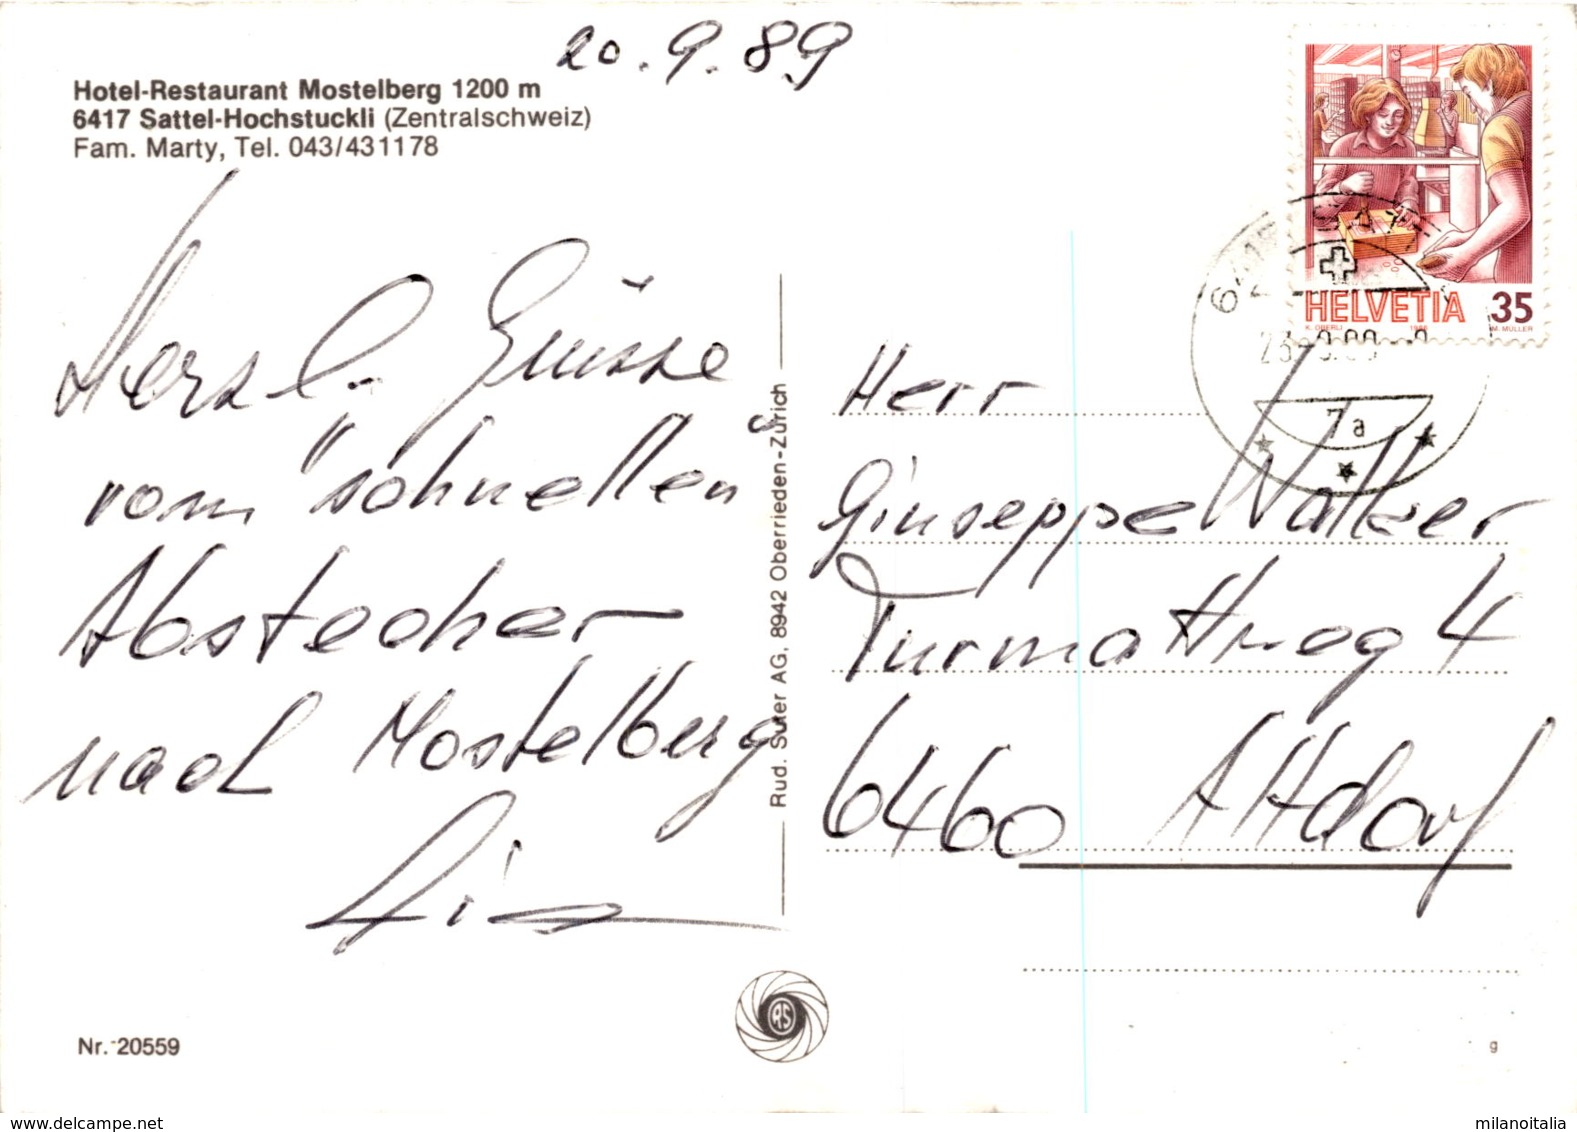 20.9.89
Hotel-Restaurant Mostelberg 1200 m
6417 Sattel-Hochstuckli (Zentralschweiz)
Fam. Marty, Tel. 043/431178
Herzl. Grüsse
vom "schnellen"
Abstecher
nach Mostelberg
Nr. 20559
Rud. Suter AG, 8942 Oberrieden-Zürich
RS
HELVETIA 35
K. OBERLI 1986 M. MÜLLER
7a
Herr
Giuseppe Walker
Turmattweg 4
6460 Altdorf
g
milanoitalia